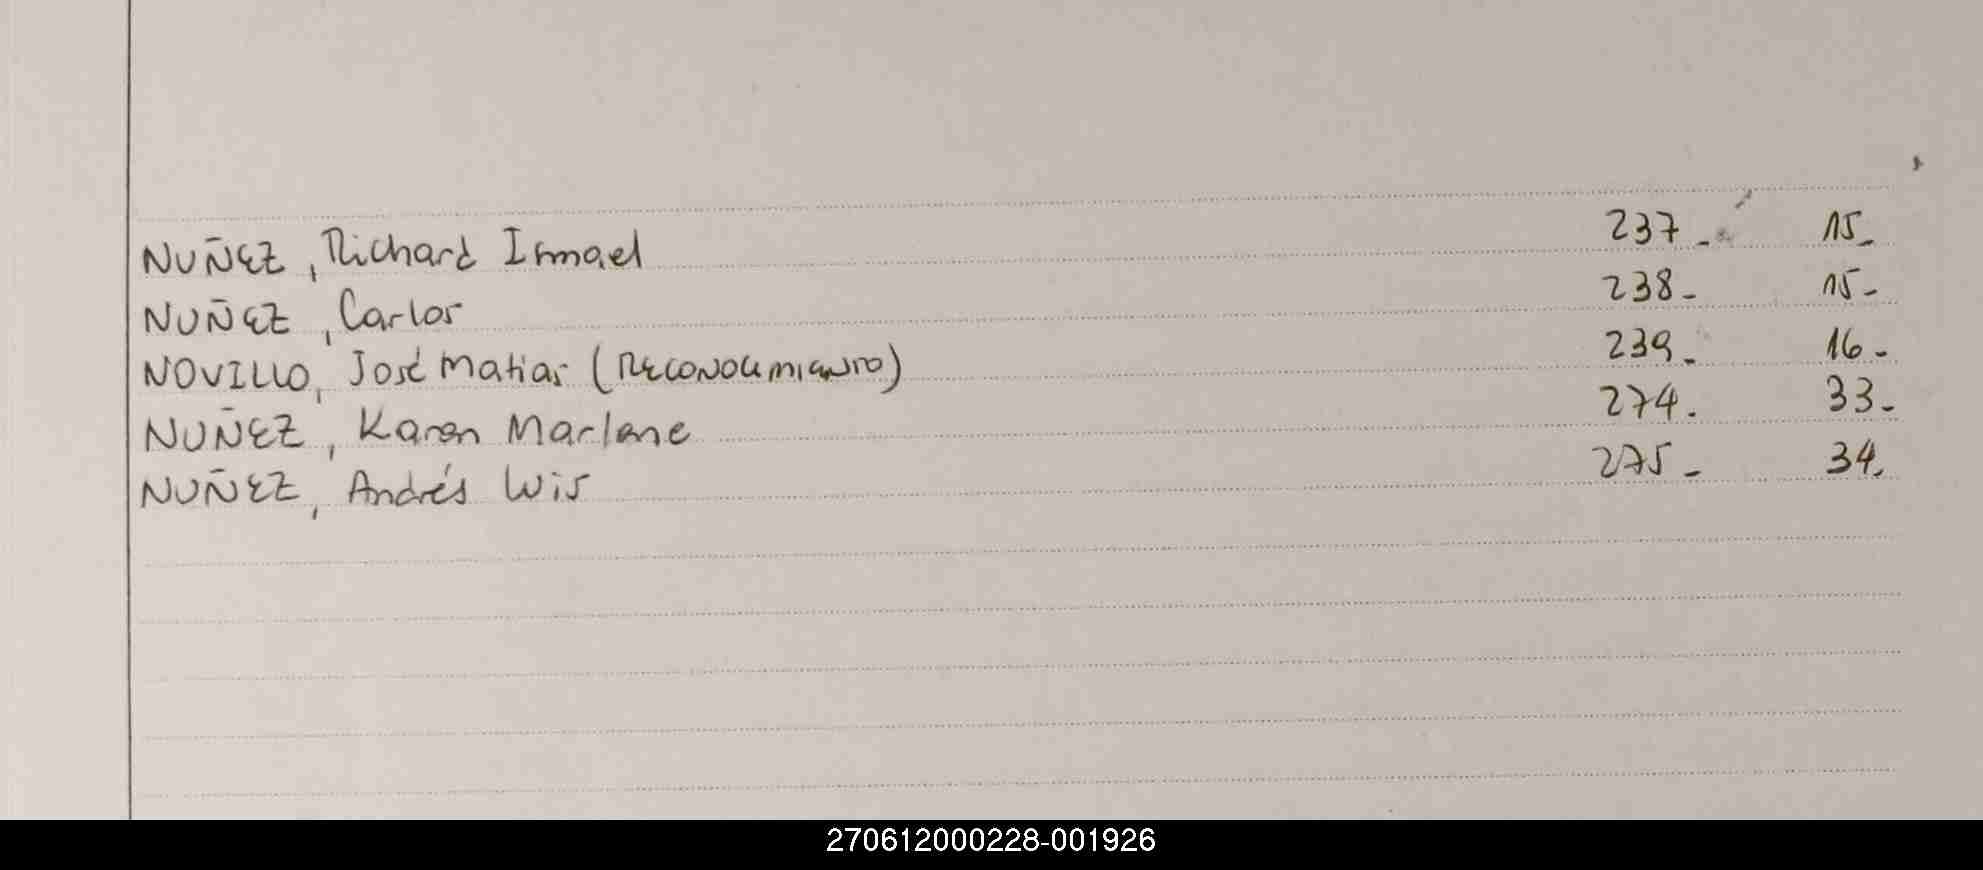 NUÑEZ, Richard Ismael 237- 15-
NUÑEZ, Carlos 238- 15-
NOVILLO, José Matias (RECONOCIMIENTO) 239- 16-
NUÑEZ, Karen Marlene 274. 33-
NUÑEZ, Andrés Luis 275- 34-
270612000228-001926